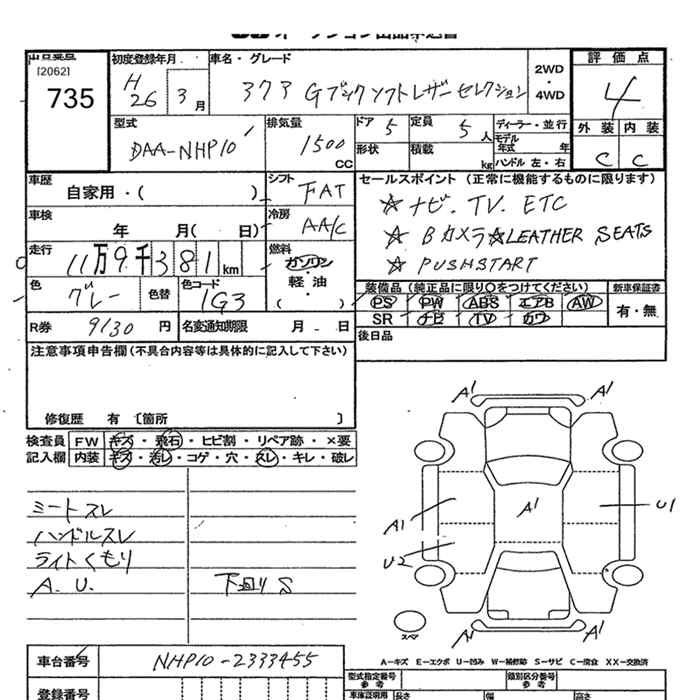 オークション出品申込書
出品番号 初度登録年月 車名・グレード 2WD・4WD 評価点
[2062]
735 H26年 3月 アクア Gブックソフトレザーセレクション 4
型式 排気量 ドア 定員 ディーラー・並行 外装 内装
DAA-NHP10 1500CC 5 5人 モデル年式 年 C C
形状 積載 kg ハンドル 左・右
車歴 自家用・( ) シフト FAT セールスポイント (正常に機能するものに限ります)
車検 年 月( 日) 冷房 AA/C ☆ナビ.TV. ETC
走行 11万9千381km 燃料 ガソリン・軽油 ( ) ☆ Bカメラ☆LEATHER SEATS
☆ PUSHSTART
色 グレー 色替 色コード 1G3 装備品 (純正品に限り○をつけてください) 新車保証書
PS PW ABS エアB AW 有・無
SR ナビ TV カワ
R券 9130円 名変通知期限 月 日 後日品
注意事項申告欄(不具合内容等は具体的に記入して下さい)
修復歴 有 〔箇所 〕
検査員 FW キズ・飛石・ヒビ割・リペア跡・×要
記入欄 内装 キズ・汚レ・コゲ・穴・スレ・キレ・破レ
A1 A1
シートスレ
ハンドルスレ
ライトくもり
A. U. 下廻りS
A1 U1
A1
U2
スペア A1 A1
A-キズ E-エクボ U-凹み W-補修跡 S-サビ C-腐食 XX-交換済
車台番号 NHP10-2333455
型式指定番号 参考 類別区分番号 参考
登録番号 車庫証明用 長さ 幅 高さ